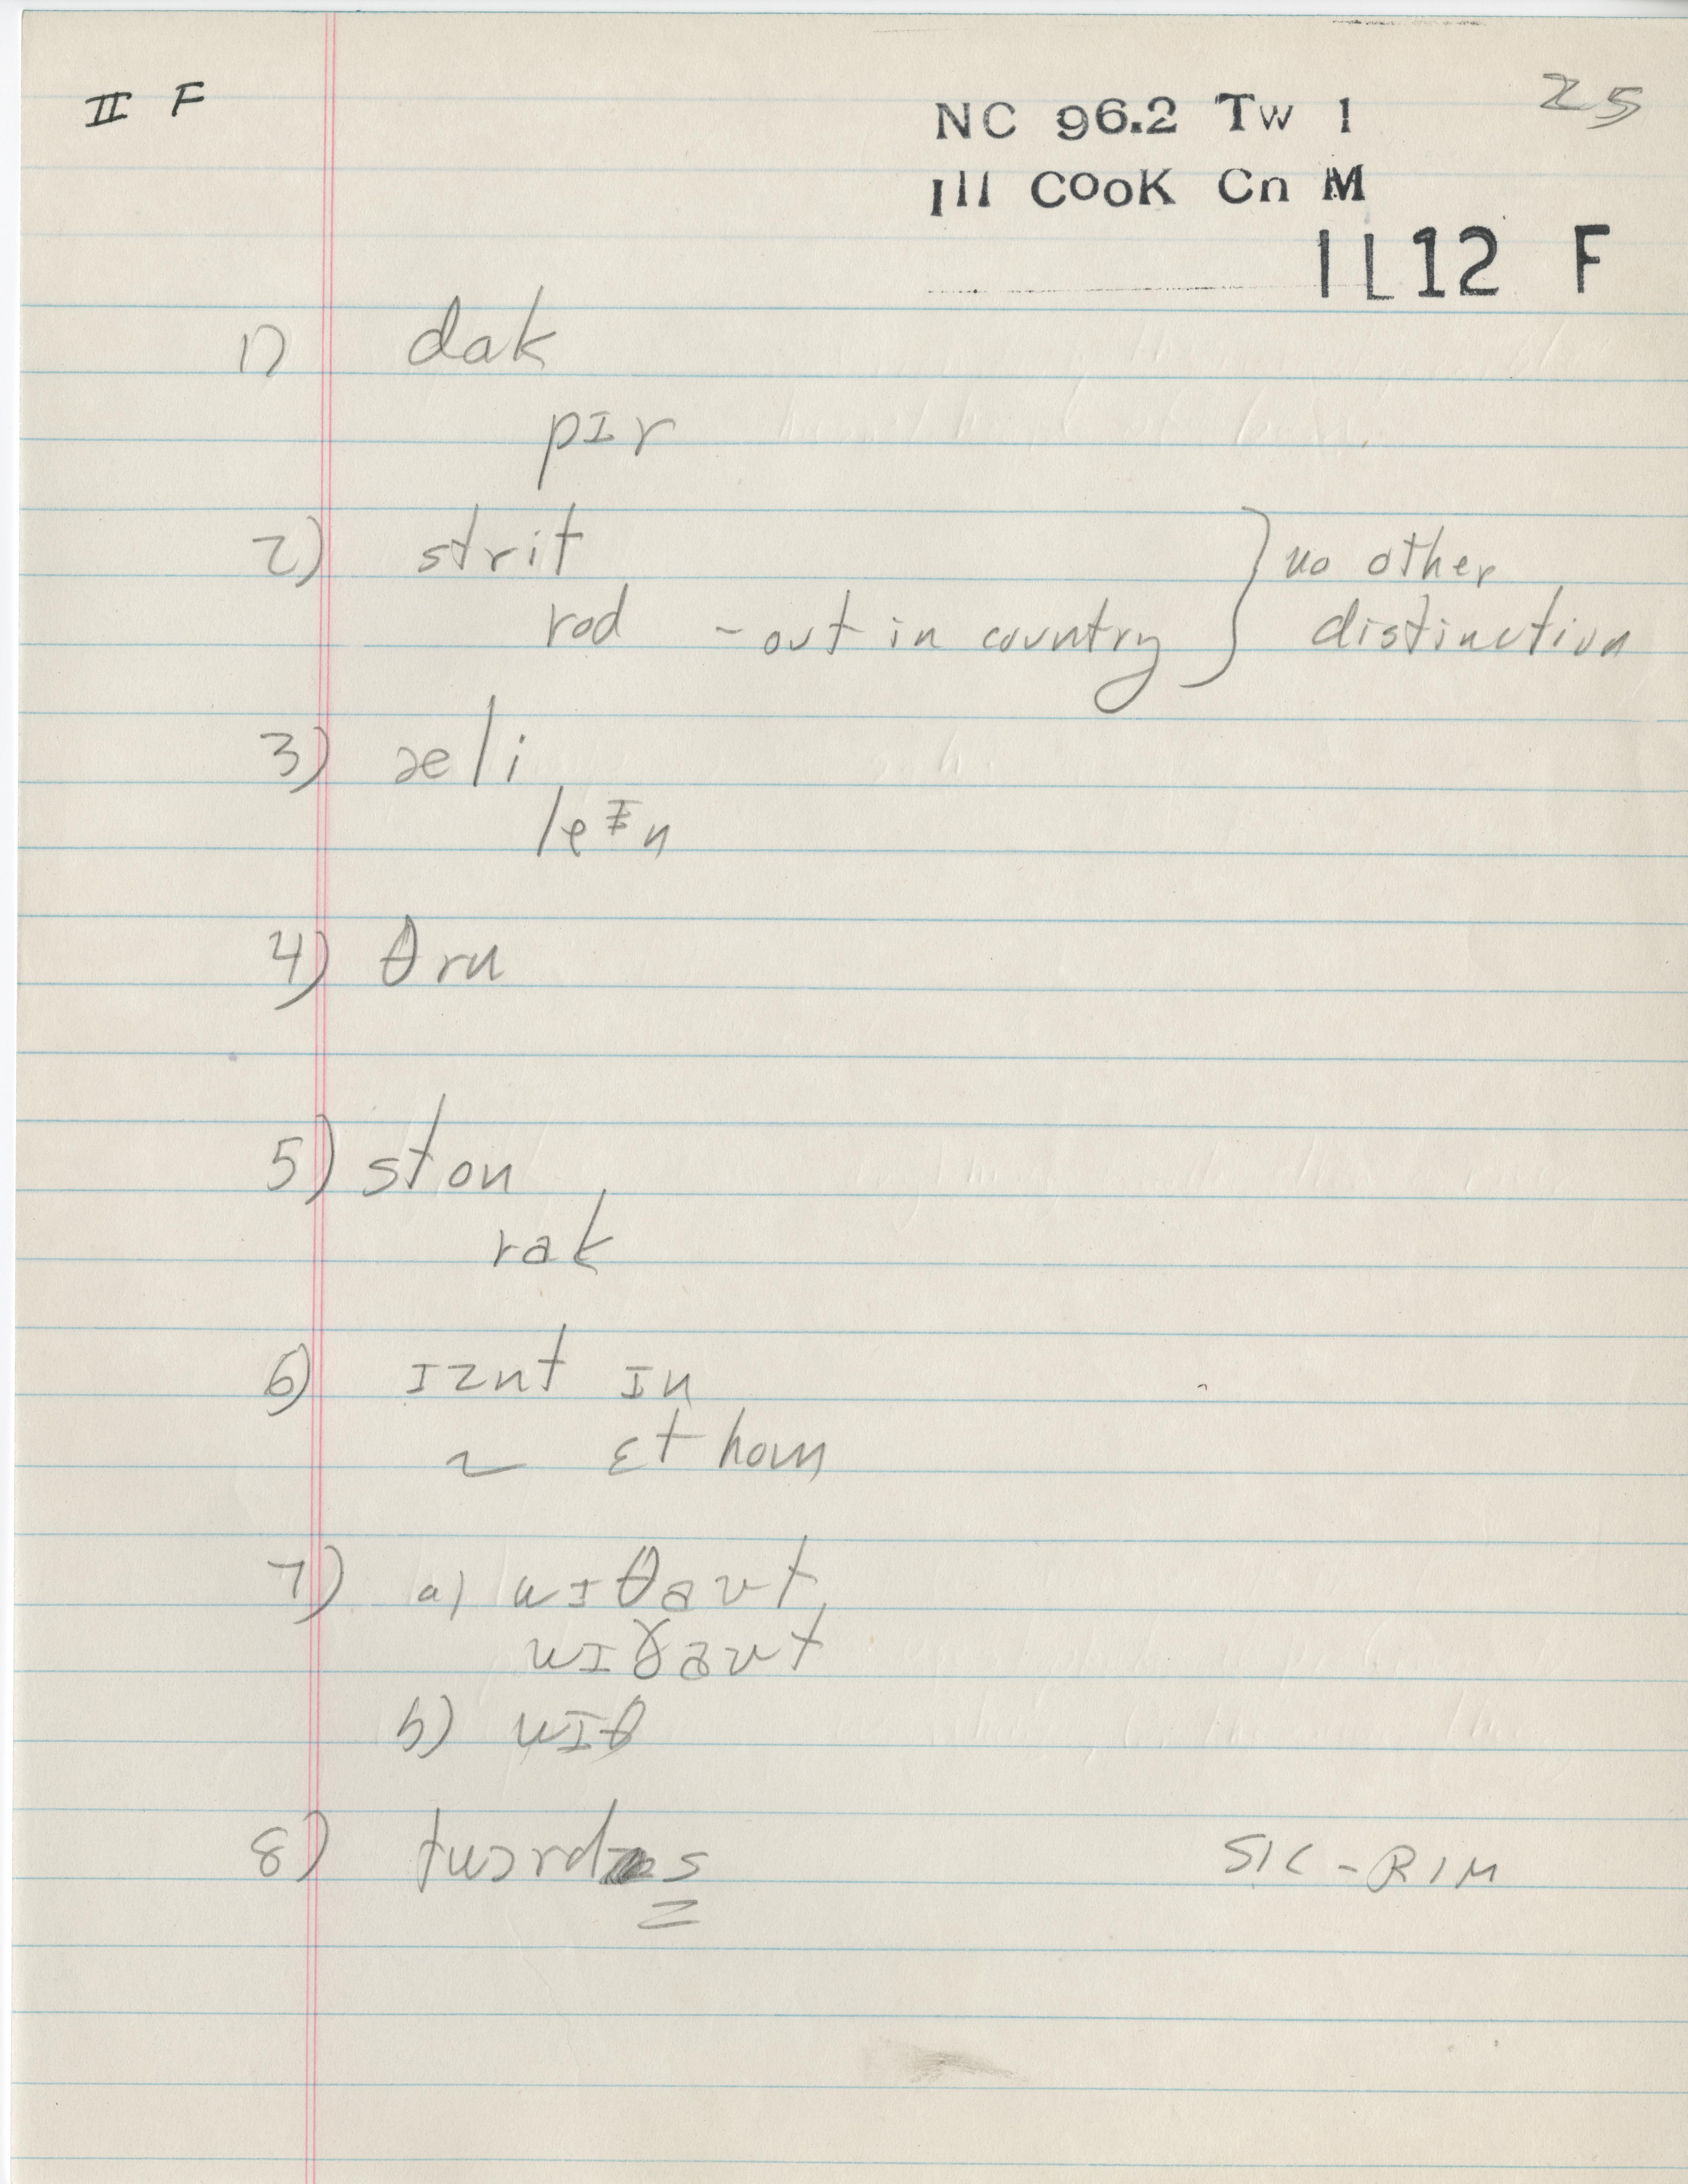 II F
25
NC 96.2 Tw 1
Ill Cook Cn M
IL12 F
1) dak
pɪr
2) strit } no other
rod - out in country } distinction
3) æli
leᵻn
4) θru
5) ston
rak
6) ɪznt ɪn
~ ɛt hom
7) a) wɪθaʊt
wɪðaʊt
b) wɪθ
8) twɔrds SIC - RIM